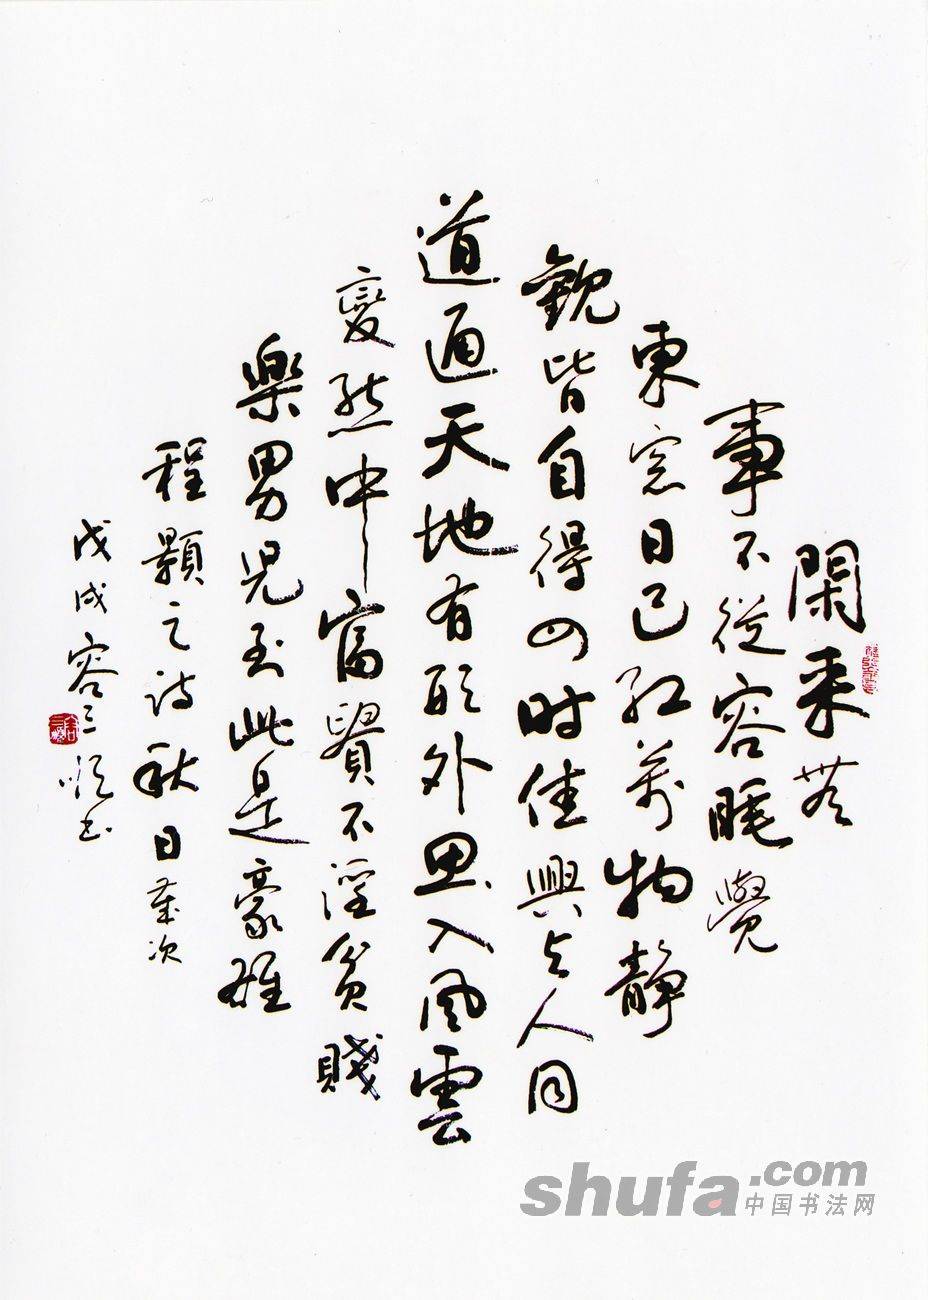 閑来無
事不從容睡覺
東窓日已紅萬物靜
觀皆自得四时佳興与人同
道通天地有形外思入風雲
變態中富貴不淫貧賤
樂男兒到此是豪雄
程顥之詩秋日
戊戌容三书
shufa.com
中国书法网